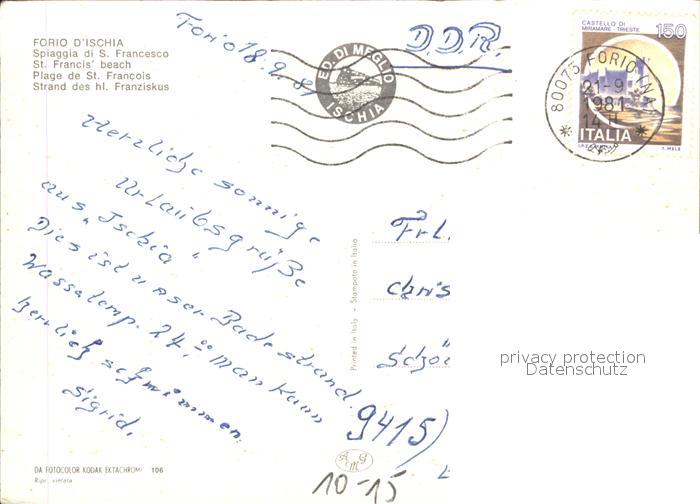 FORIO D'ISCHIA
Spiaggia di S. Francesco
St. Francis' beach
Plage de St. François
Strand des hl. Franziskus
Forio 18.9.81
D.D.R.
ED. DI MEGLIO
ISCHIA
CASTELLO DI
MIRAMARE - TRIESTE
150
80075 FORIO (NA)
21-9
1981
14
ITALIA
Herzliche sonnige
Urlaubsgrüße
aus "Ischia"
Dies ist unser Badestrand.
Wassertemp. 24° man kann
herrlich schwimmen.
Sigrid.
Frl.
Chris
9415)
Printed in Italy • Stampata in Italia
privacy protection
Datenschutz
DA FOTOCOLOR KODAK EKTACHROM 106
Ripr. vietata
10-15